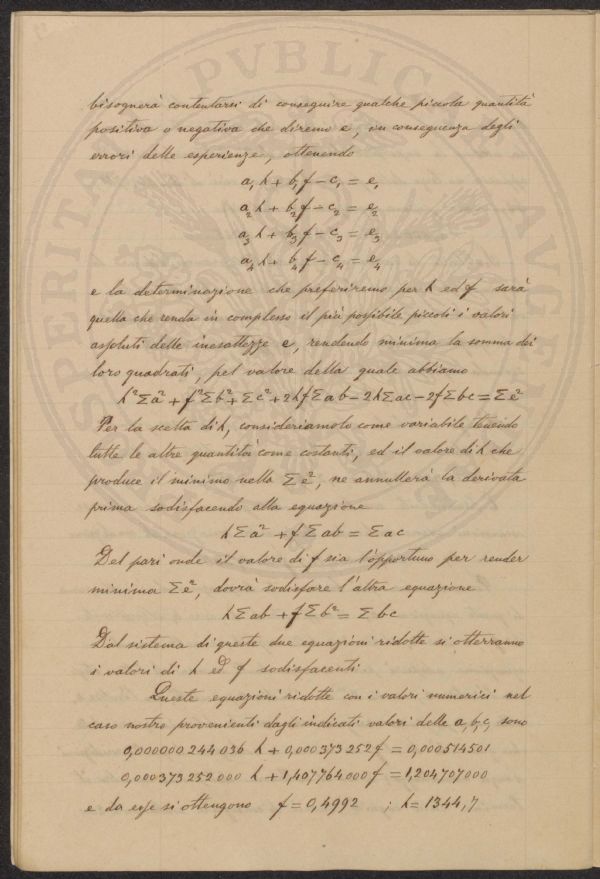 bisognerà contentarsi di conseguire qualche piccola quantità
positiva o negativa che diremo e, in conseguenza degli
errori delle esperienze, ottenendo
a₁h + b₁f − c₁ = e₁
a₂h + b₂f − c₂ = e₂
a₃h + b₃f − c₃ = e₃
a₄h + b₄f − c₄ = e₄
e la determinazione che preferiremo per h ed f sarà
quella che renda in complesso il più possibile piccoli i valori
assoluti delle inesattezze e, rendendo minima la somma dei
loro quadrati, pel valore della quale abbiamo
h²Σa² + f²Σb² + Σc² + 2hfΣab − 2hΣac − 2fΣbc = Σe²
Per la scelta di h, consideriamolo come variabile tenendo
tutte le altre quantità come costanti, ed il valore di h che
produce il minimo nella Σe², ne annullerà la derivata
prima sodisfacendo alla equazione
hΣa² + fΣab = Σac
Del pari onde il valore di f sia l'opportuno per render
minima Σe², dovrà sodisfare l'altra equazione
hΣab + fΣb² = Σbc
Dal sistema di queste due equazioni ridotte si otterranno
i valori di h ed f sodisfacenti.
Queste equazioni ridotte con i valori numerici nel
caso nostro provenienti dagli indicati valori delle a, b, c, sono
0,000000244036 h + 0,000373252 f = 0,000514501
0,000373252000 h + 1,407764000 f = 1,204707000
e da esse si ottengono f = 0,4992 ; h = 1344,7